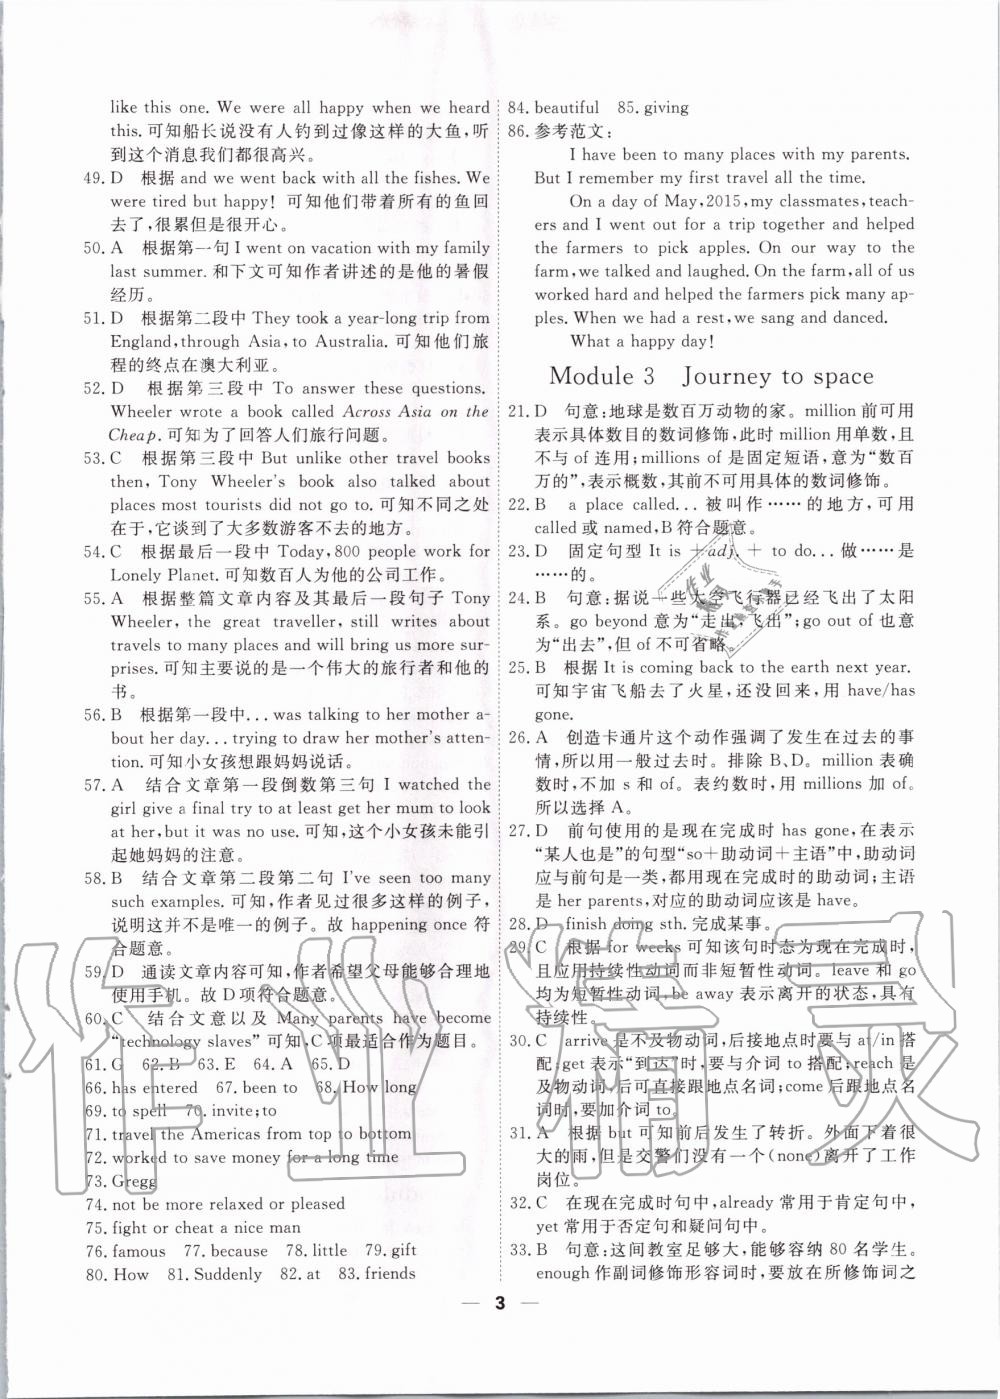 like this one. We were all happy when we heard
this. 可知船长说没有人钓到过像这样的大鱼,听
到这个消息我们都很高兴。
49. D 根据 and we went back with all the fishes. We
were tired but happy! 可知他们带着所有的鱼回
去了,很累但是很开心。
50. A 根据第一句 I went on vacation with my family
last summer. 和下文可知作者讲述的是他的暑假
经历。
51. D 根据第二段中 They took a year-long trip from
England, through Asia, to Australia. 可知他们旅
程的终点在澳大利亚。
52. D 根据第三段中 To answer these questions.
Wheeler wrote a book called Across Asia on the
Cheap. 可知为了回答人们旅行问题。
53. C 根据第三段中 But unlike other travel books
then, Tony Wheeler's book also talked about
places most tourists did not go to. 可知不同之处
在于,它谈到了大多数游客不去的地方。
54. C 根据最后一段中 Today, 800 people work for
Lonely Planet. 可知数百人为他的公司工作。
55. A 根据整篇文章内容及其最后一段句子 Tony
Wheeler, the great traveller, still writes about
travels to many places and will bring us more sur-
prises. 可知主要说的是一个伟大的旅行者和他的
书。
56. B 根据第一段中... was talking to her mother a-
bout her day... trying to draw her mother's atten-
tion. 可知小女孩想跟妈妈说话。
57. A 结合文章第一段倒数第三句 I watched the
girl give a final try to at least get her mum to look
at her, but it was no use. 可知,这个小女孩未能引
起她妈妈的注意。
58. B 结合文章第二段第二句 I've seen too many
such examples. 可知,作者见过很多这样的例子,
说明这并不是唯一的例子。故 happening once 符
合题意。
59. D 通读文章内容可知,作者希望父母能够合理地
使用手机。故 D 项符合题意。
60. C 结合文意以及 Many parents have become
“technology slaves” 可知,C 项最适合作为题目。
61. G 62. B 63. E 64. A 65. D
66. has entered 67. been to 68. How long
69. to spell 70. invite; to
71. travel the Americas from top to bottom
72. worked to save money for a long time
73. Gregg
74. not be more relaxed or pleased
75. fight or cheat a nice man
76. famous 77. because 78. little 79. gift
80. How 81. Suddenly 82. at 83. friends
84. beautiful 85. giving
86. 参考范文:
I have been to many places with my parents.
But I remember my first travel all the time.
On a day of May, 2015, my classmates, teach-
ers and I went out for a trip together and helped
the farmers to pick apples. On our way to the
farm, we talked and laughed. On the farm, all of us
worked hard and helped the farmers pick many ap-
ples. When we had a rest, we sang and danced.
What a happy day!
Module 3 Journey to space
21. D 句意:地球是数百万动物的家。million 前可用
表示具体数目的数词修饰,此时 million 用单数,且
不与 of 连用;millions of 是固定短语,意为“数百
万的”,表示概数,其前不可用具体的数词修饰。
22. B a place called... 被叫作……的地方,可用
called 或 named,B 符合题意。
23. D 固定句型 It is + adj. + to do... 做……是
……的。
24. B 句意:据说一些太空飞行器已经飞出了太阳
系。go beyond 意为“走出,飞出”;go out of 也意
为“出去”,但 of 不可省略。
25. B 根据 It is coming back to the earth next year.
可知宇宙飞船去了火星,还没回来,用 have/has
gone.
26. A 创造卡通片这个动作强调了发生在过去的事
情,所以用一般过去时。排除 B、D。million 表确
数时,不加 s 和 of。表约数时,millions 加 of。
所以选择 A。
27. D 前句使用的是现在完成时 has gone,在表示
“某人也是”的句型“so+助动词+主语”中,助动词
应与前句是一类,都用现在完成时的助动词;主语
是 her parents,对应的助动词应该是 have。
28. D finish doing sth. 完成某事。
29. C 根据 for weeks 可知该句时态为现在完成时,
且应用持续性动词而非短暂性动词。leave 和 go
均为短暂性动词,be away 表示离开的状态,具有
持续性。
30. C arrive 是不及物动词,后接地点时要与 at/in 搭
配;get 表示“到达”时,要与介词 to 搭配;reach 是
及物动词,后可直接跟地点名词;come 后跟地点名
词时,要加介词 to。
31. A 根据 but 可知前后发生了转折。外面下着很
大的雨,但是交警们没有一个(none)离开了工作
岗位。
32. C 在现在完成时句中,already 常用于肯定句中,
yet 常用于否定句和疑问句中。
33. B 句意:这间教室足够大,能够容纳 80 名学生。
enough 作副词修饰形容词时,要放在所修饰词之
— 3 —
作业精灵